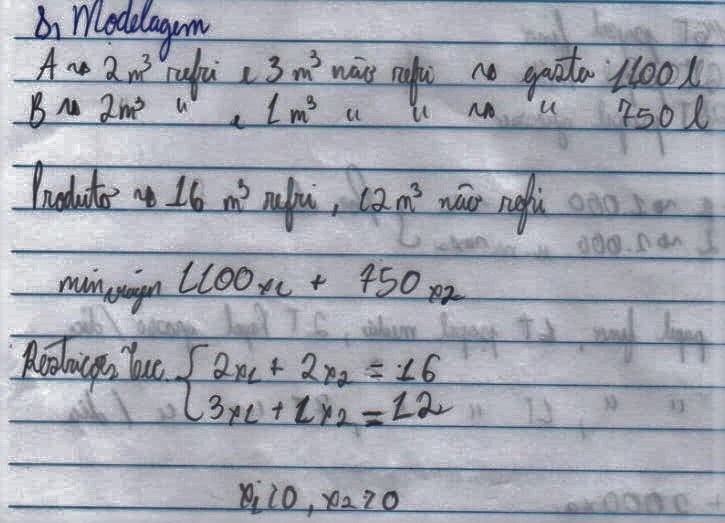 8, Modelagem
A ~> 2m³ refri e 3 m³ não refri ~> gasta 1100 l
B ~> 2m³ " e 1 m³ " " ~> " 750 l
Produto ~> 16 m³ refri, 12m³ não refri
min viagem 1100x1 + 750x2
Restrições Tec. { 2x1 + 2x2 = 16
3x1 + 1x2 = 12
x1 ≥ 0, x2 ≥ 0